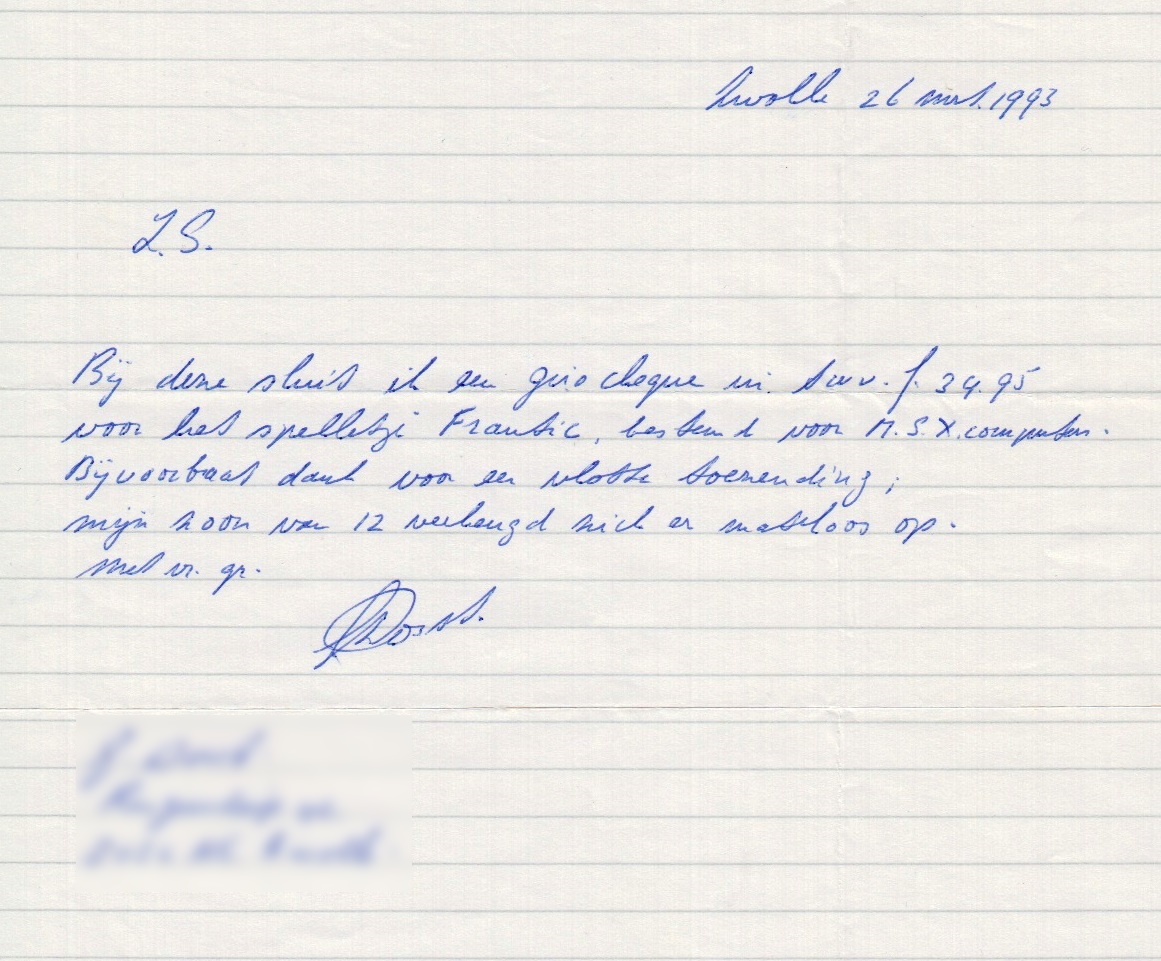 Zwolle 26 mrt. 1993
L.S.
Bij deze sluit ik een giro cheque in t.w.v. f. 34.95
voor het spelletje Frantic, bestemd voor M.S.X. computers.
Bijvoorbaat dank voor een vlotte toezending;
mijn zoon van 12 verheugd zich er mateloos op.
Met vr. gr.